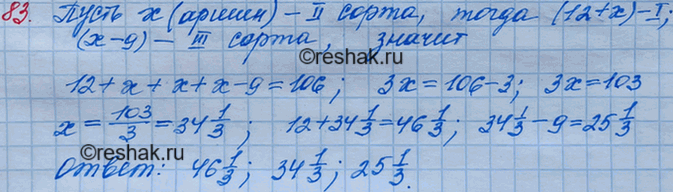 83. Пусть x (аршин) – II сорта, тогда (12+x) – I;
(x-9) – III сорта, значит
©reshak.ru
12+x+x+x-9=106; 3x=106-3; 3x=103
x=\frac{103}{3}=34\frac{1}{3}; 12+34\frac{1}{3}=46\frac{1}{3}; 34\frac{1}{3}-9=25\frac{1}{3}
©reshak.ru
Ответ: 46\frac{1}{3}; 34\frac{1}{3}; 25\frac{1}{3}.